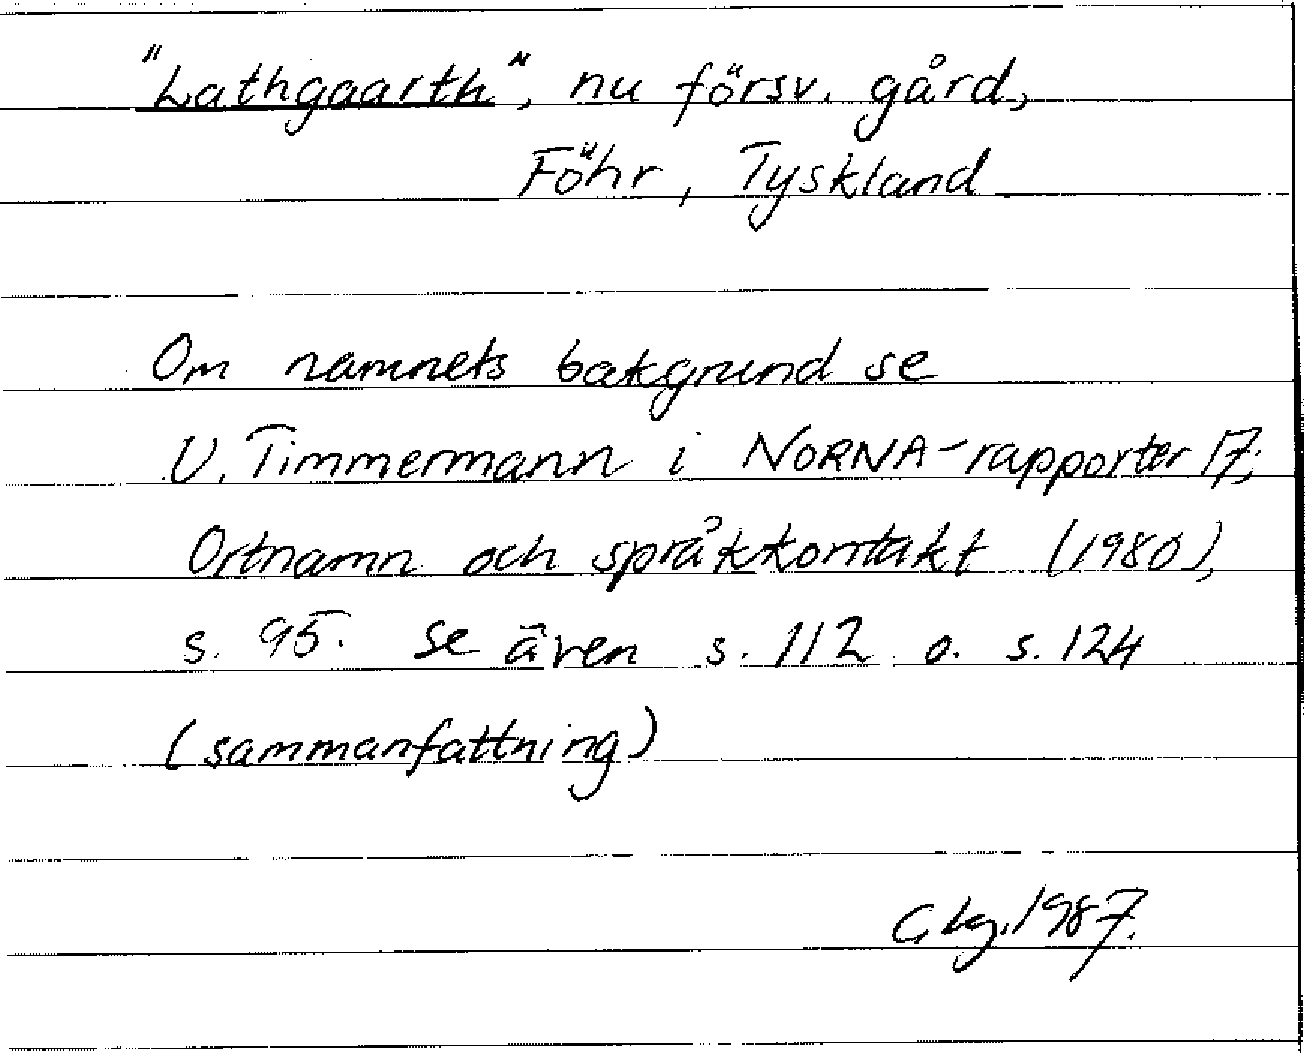 "Lathgaarth", nu försv. gård,
Föhr, Tyskland
Om namnets bakgrund se
U. Timmermann i NORNA-rapporter 17;
Ortnamn och språkkontakt (1980),
s. 95. Se även s. 112 o. s. 124
(sammanfattning)
C.Lg. 1987.